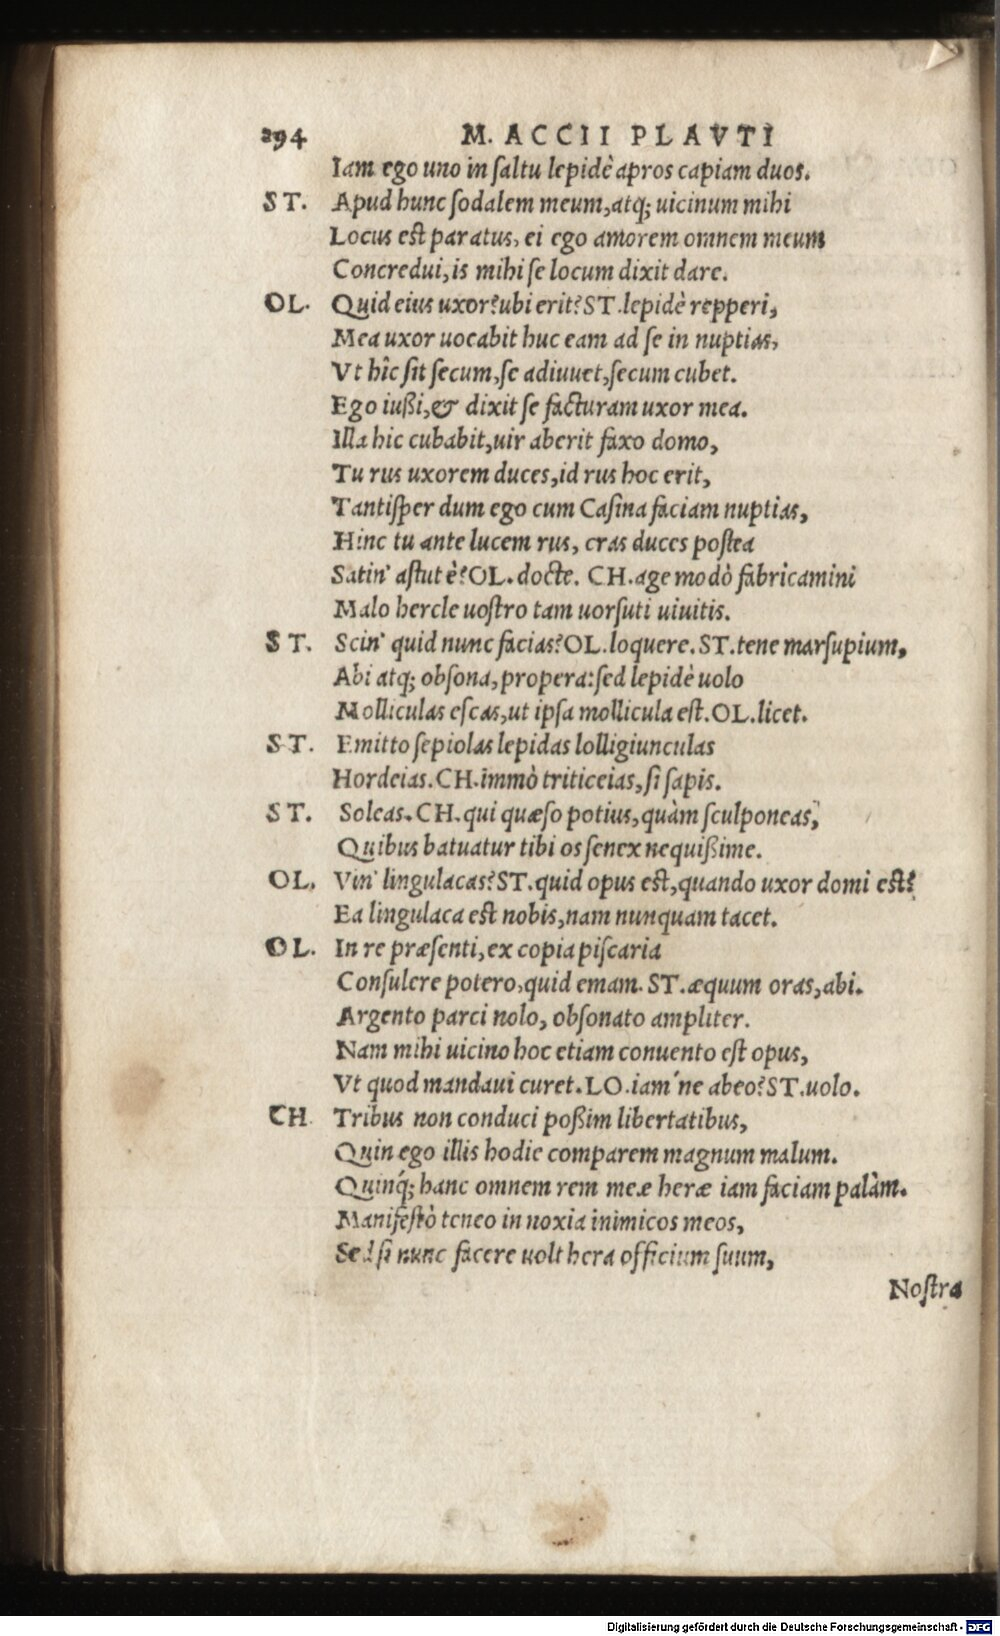 294 M. ACCII PLAVTI
Iam ego uno in ſaltu lepidè apros capiam duos.
ST. Apud hunc ſodalem meum, atq; uicinum mihi
Locus eſt paratus, ei ego amorem omnem meum
Concredui, is mihi ſe locum dixit dare.
OL. Quid eius uxor? ubi erit? ST. lepidè repperi,
Mea uxor uocabit huc eam ad ſe in nuptias,
Vt hîc ſit ſecum, ſe adiuuet, ſecum cubet.
Ego iußi, & dixit ſe facturam uxor mea.
Illa hic cubabit, uir aberit faxo domo,
Tu rus uxorem duces, id rus hoc erit,
Tantiſper dum ego cum Caſina faciam nuptias,
Hinc tu ante lucem rus, cras duces poſtea
Satin' aſtutè? OL. docte. CH. age modò fabricamini
Malo hercle uoſtro tam uorſuti uiuitis.
ST. Scin' quid nunc facias? OL. loquere. ST. tene marſupium,
Abi atq; obſona, propera: ſed lepidè uolo
Molliculas eſcas, ut ipſa mollicula eſt. OL. licet.
ST. Emitto ſepiolas lepidas lolligiunculas
Hordeias. CH. immò triticeias, ſi ſapis.
ST. Soleas. CH. qui quæſo potius, quàm ſculponeas,
Quibus batuatur tibi os ſenex nequißime.
OL. Vin' lingulacas? ST. quid opus eſt, quando uxor domi eſt?
Ea lingulaca eſt nobis, nam nunquam tacet.
OL. In re præſenti, ex copia piſcaria
Conſulere potero, quid emam. ST. æquum oras, abi.
Argento parci nolo, obſonato ampliter.
Nam mihi uicino hoc etiam conuento eſt opus,
Vt quod mandaui curet. LO. iam'ne abeo? ST. uolo.
CH. Tribus non conduci poßim libertatibus,
Quin ego illis hodie comparem magnum malum.
Quinq́; hanc omnem rem meæ heræ iam faciam palàm.
Manifeſtò teneo in noxia inimicos meos,
Sed ſi nunc facere uolt hera officium ſuum,
Noſtra
Digitalisierung gefördert durch die Deutsche Forschungsgemeinschaft - DFG